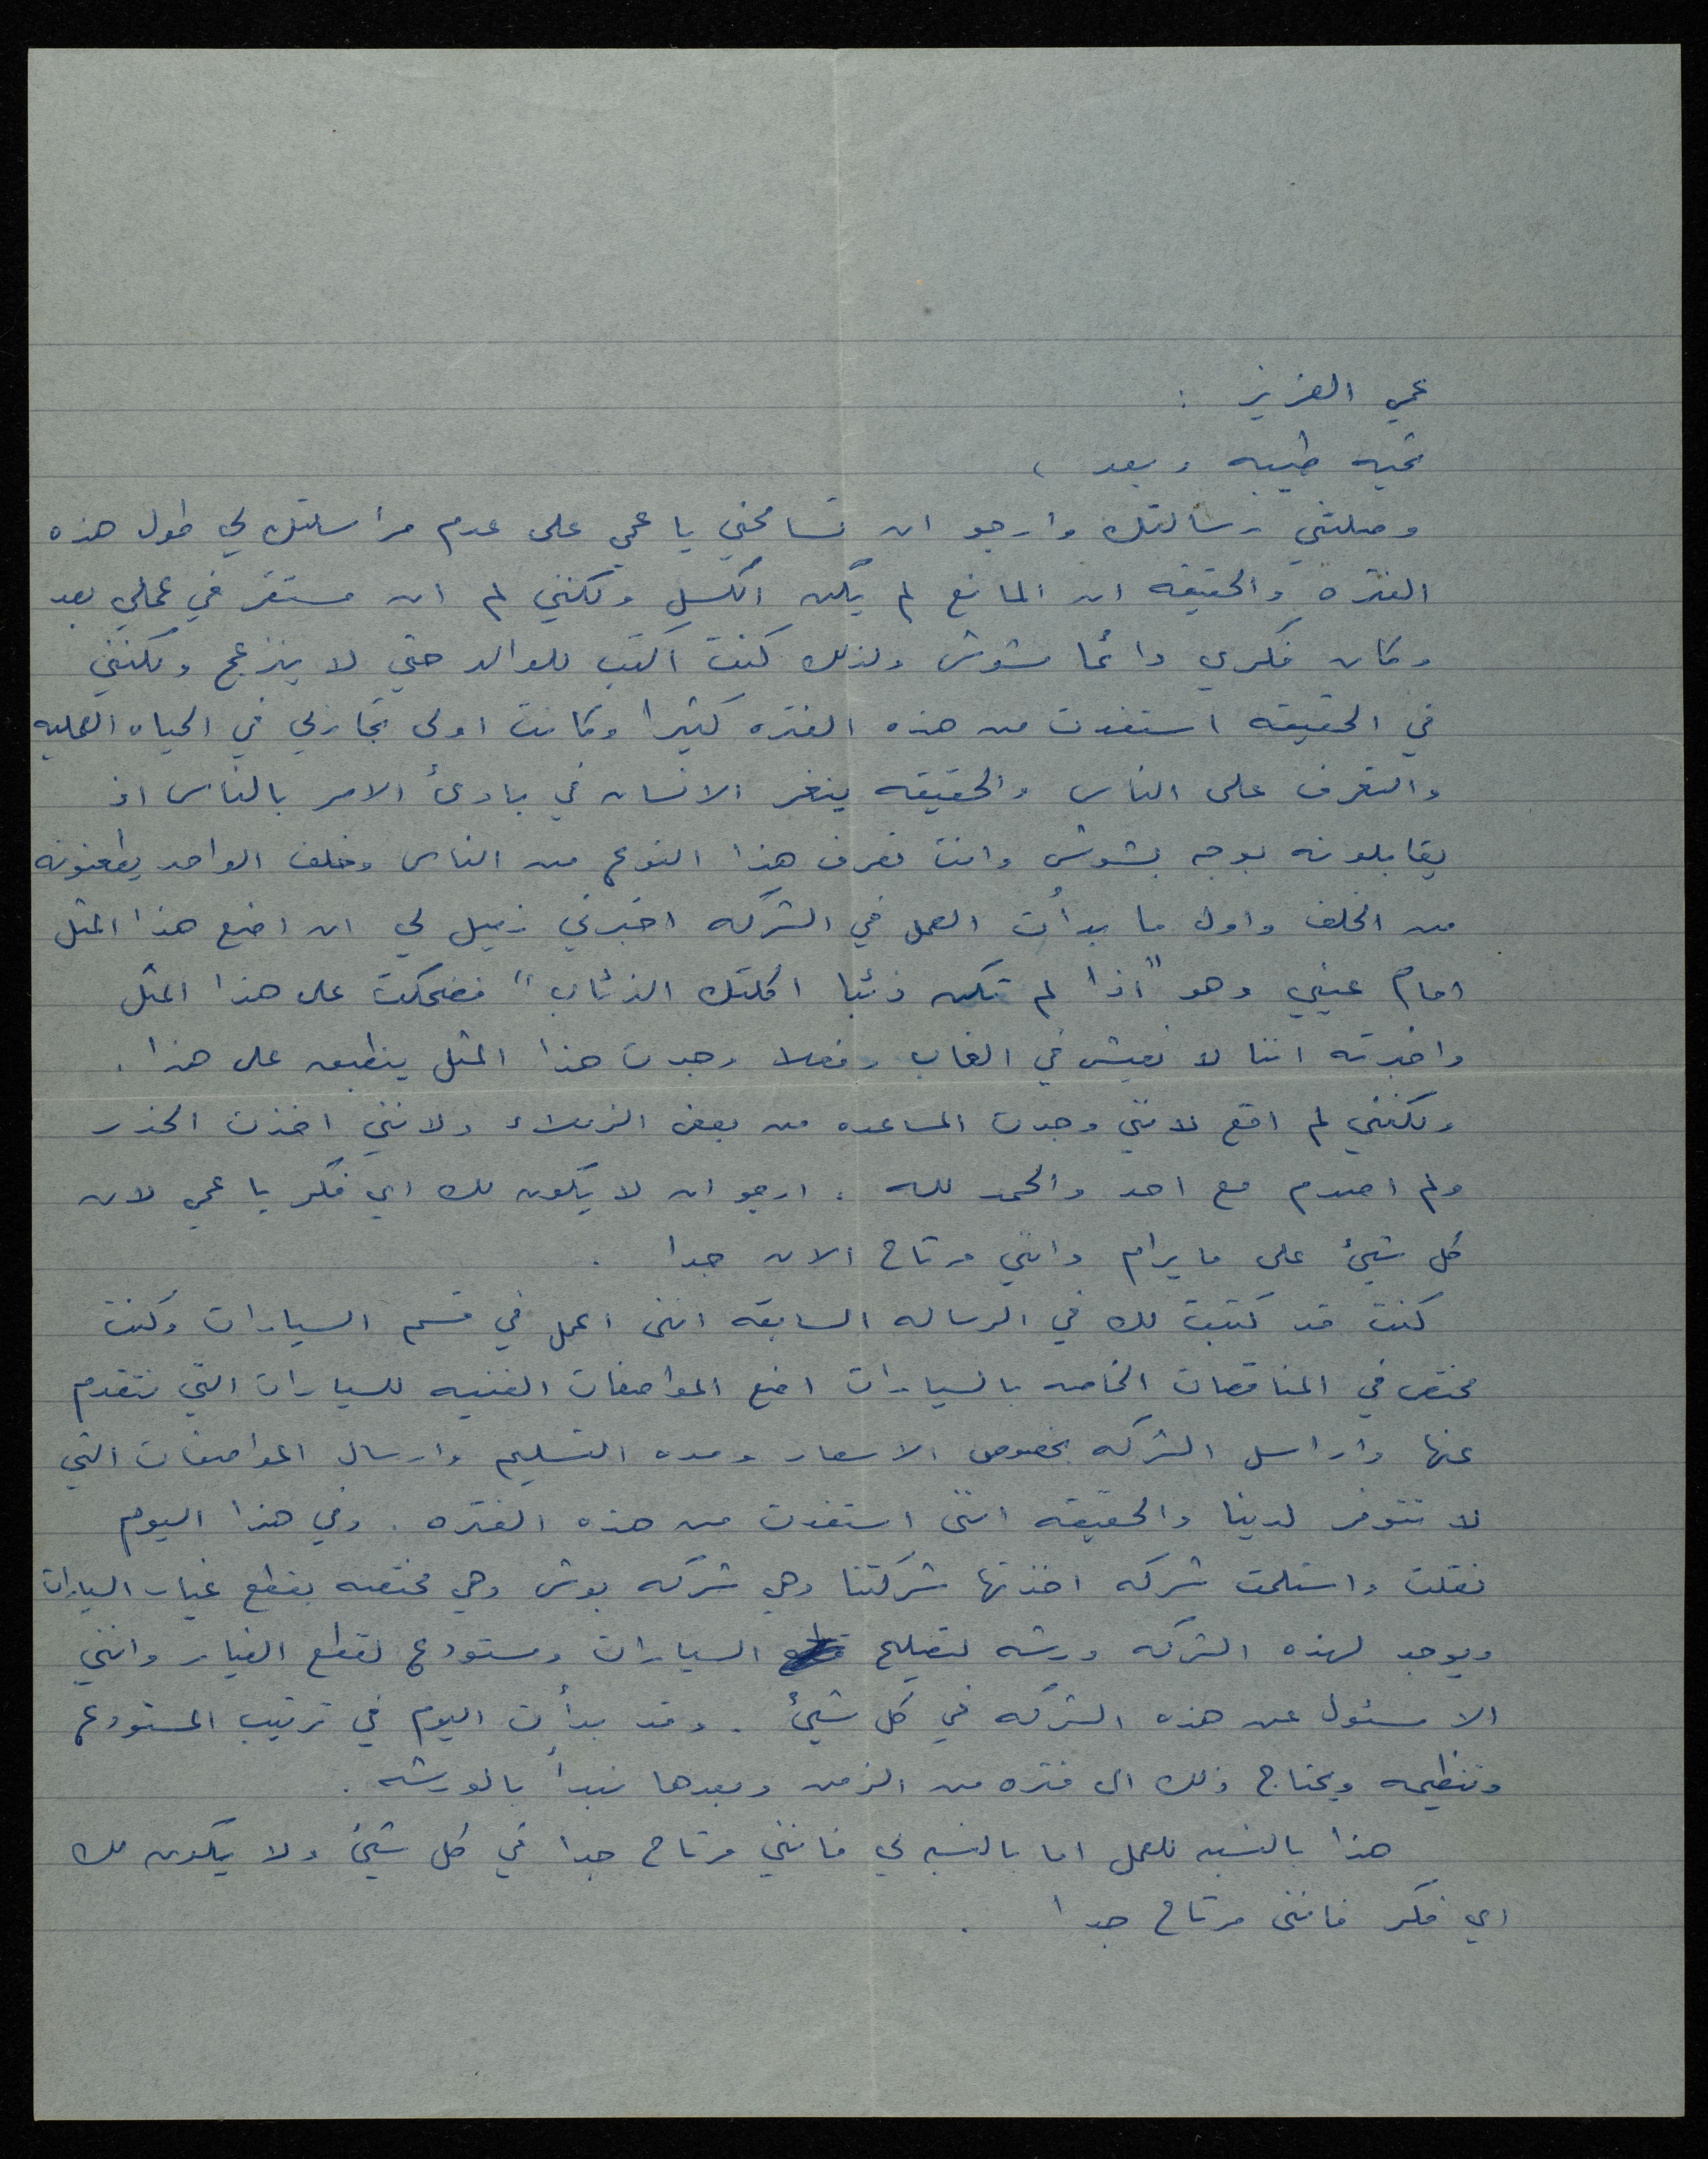 عمي العزيز :
تحيه طيبه وبعد ،
وصلتني رسالتك وارجو ان تسامحني يا عمي على عدم مراسلتك لي طول هذه
الفتره والحقيقه ان المانع لم يكن الكسل ولكنني لم ان مستقر في عملي بعد
وكان فكري دائما مشوش ولذلك كنت اكتب للوالد حتي لا ينزعج ولكنني
في الحقيقه استفدت من هذه الفتره كثيرا وكانت اولى تجاربي في الحياه العمليه
والتعرف على الناس والحقيقه ينغر الانسان في بادئ الامر بالناس اذ
يقابلونه بوجه بشوش وانت تعرف هذا النوع من الناس وخلف الواحد يطعنونه
من الخلف واول ما بدأت العمل في الشركه اخبرني زميل لي ان اضع هذا المثل
امام عيني وهو "اذا لم تكن ذئبا اكلتك الذئاب" فضحكت على هذا المثل
واخبرته اننا لا نعيش في الغاب وفعلا وجدت هذا المثل ينطبق على هذا .
ولكنني لم اقع لانني وجدت المساعده من بعض الزملاء ولانني اخذت الحذر
ولم اصدم مع احد والحمد لله . ارجو ان لا يكون لك اي فكر يا عمي لان
كل شيئ على ما يرام وانني مرتاح الان جدا .
كنت قد كتبت لك في الرساله السابقه انني اعمل في قسم السيارات وكنت
مختص في المناقصات الخاصه بالسيارات اضع المواصفات الفنيه للسيارات التي نتقدم
عنها واراسل الشركه بخصوص الاسعار ومده التسليم وارسال المواصفات التي
لا تتوفر لدينا والحقيقه انني استفدت من هذه الفتره . وفي هذا اليوم
نقلت واستلمت شركه اخذتها شركتنا وهي شركه بوش وهي مختصه بقطع غيار السيارات
ويوجد لهذه الشركه ورشه لتصليح السيارات ومستودع لقطع الغيار وانني
الا مسئول عن هذه الشركه في كل شيئ . وقد بدأت اليوم في ترتيب المستودع
وتنظيمه ويحتاج ذلك الى فتره من الزمن وبعدها نبدأ بالورشه .
هذا بالنسبه للعمل اما بالنسبه لي فانني مرتاح جدا في كل شيئ ولا يكون لك
اي فكر فانني مرتاح جدا .